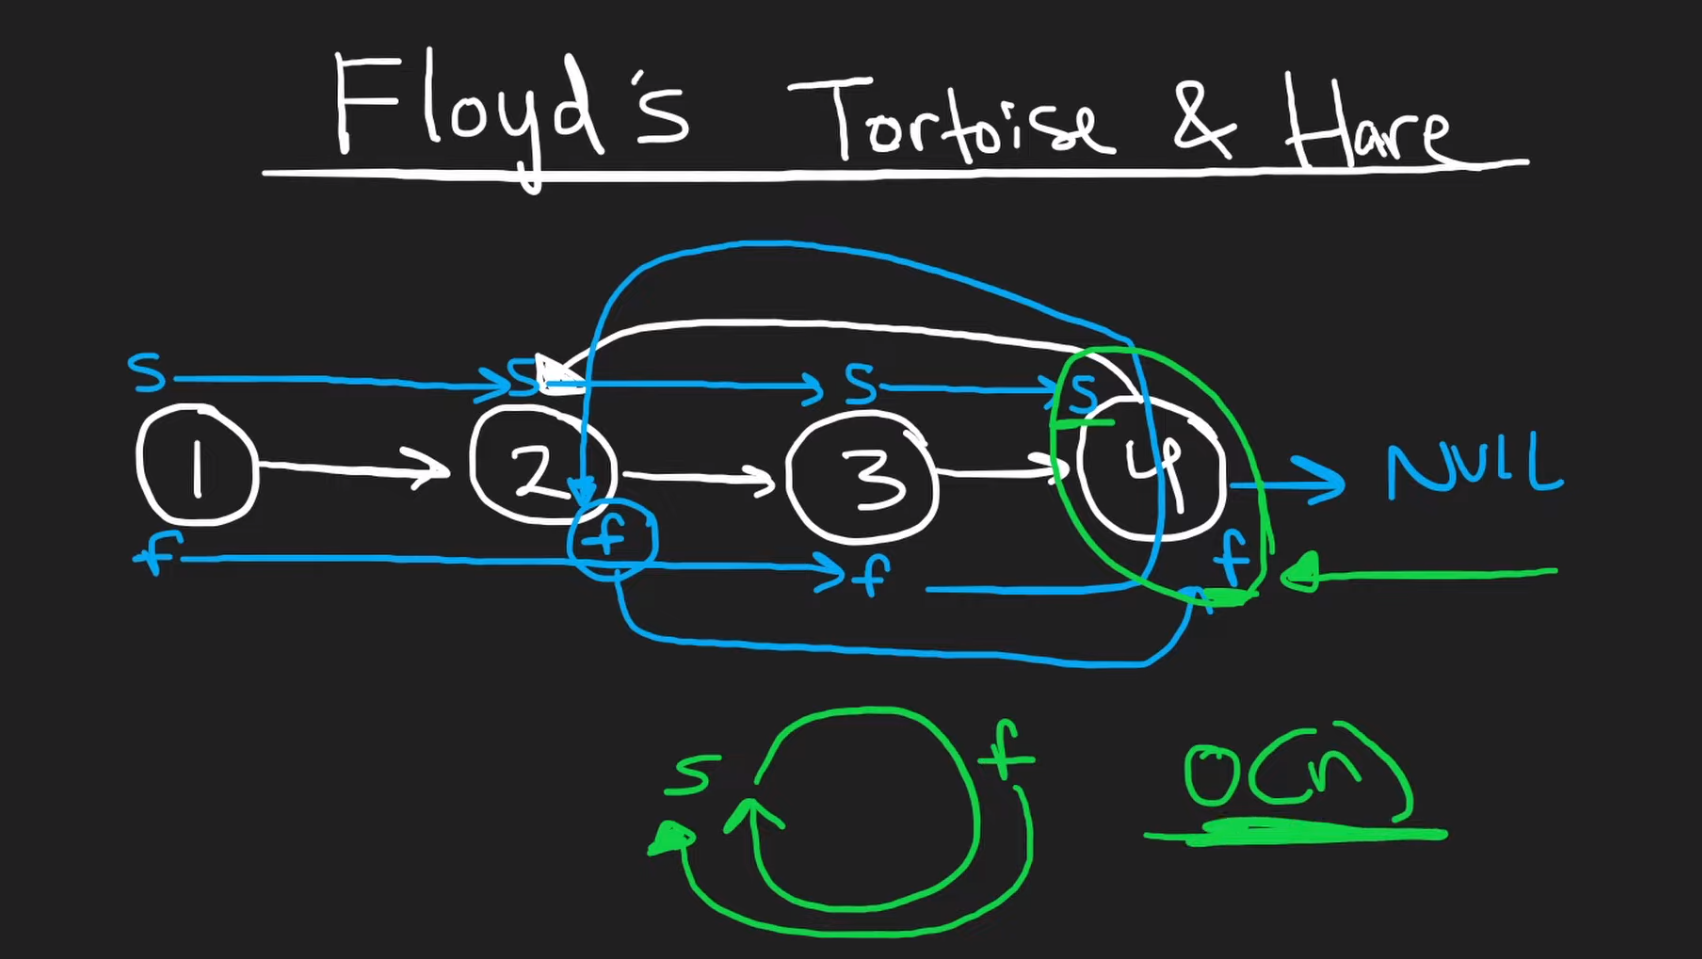 Floyd's Tortoise & Hare
s s s s
1 2 3 4 NULL
f f f f
s f O(n)